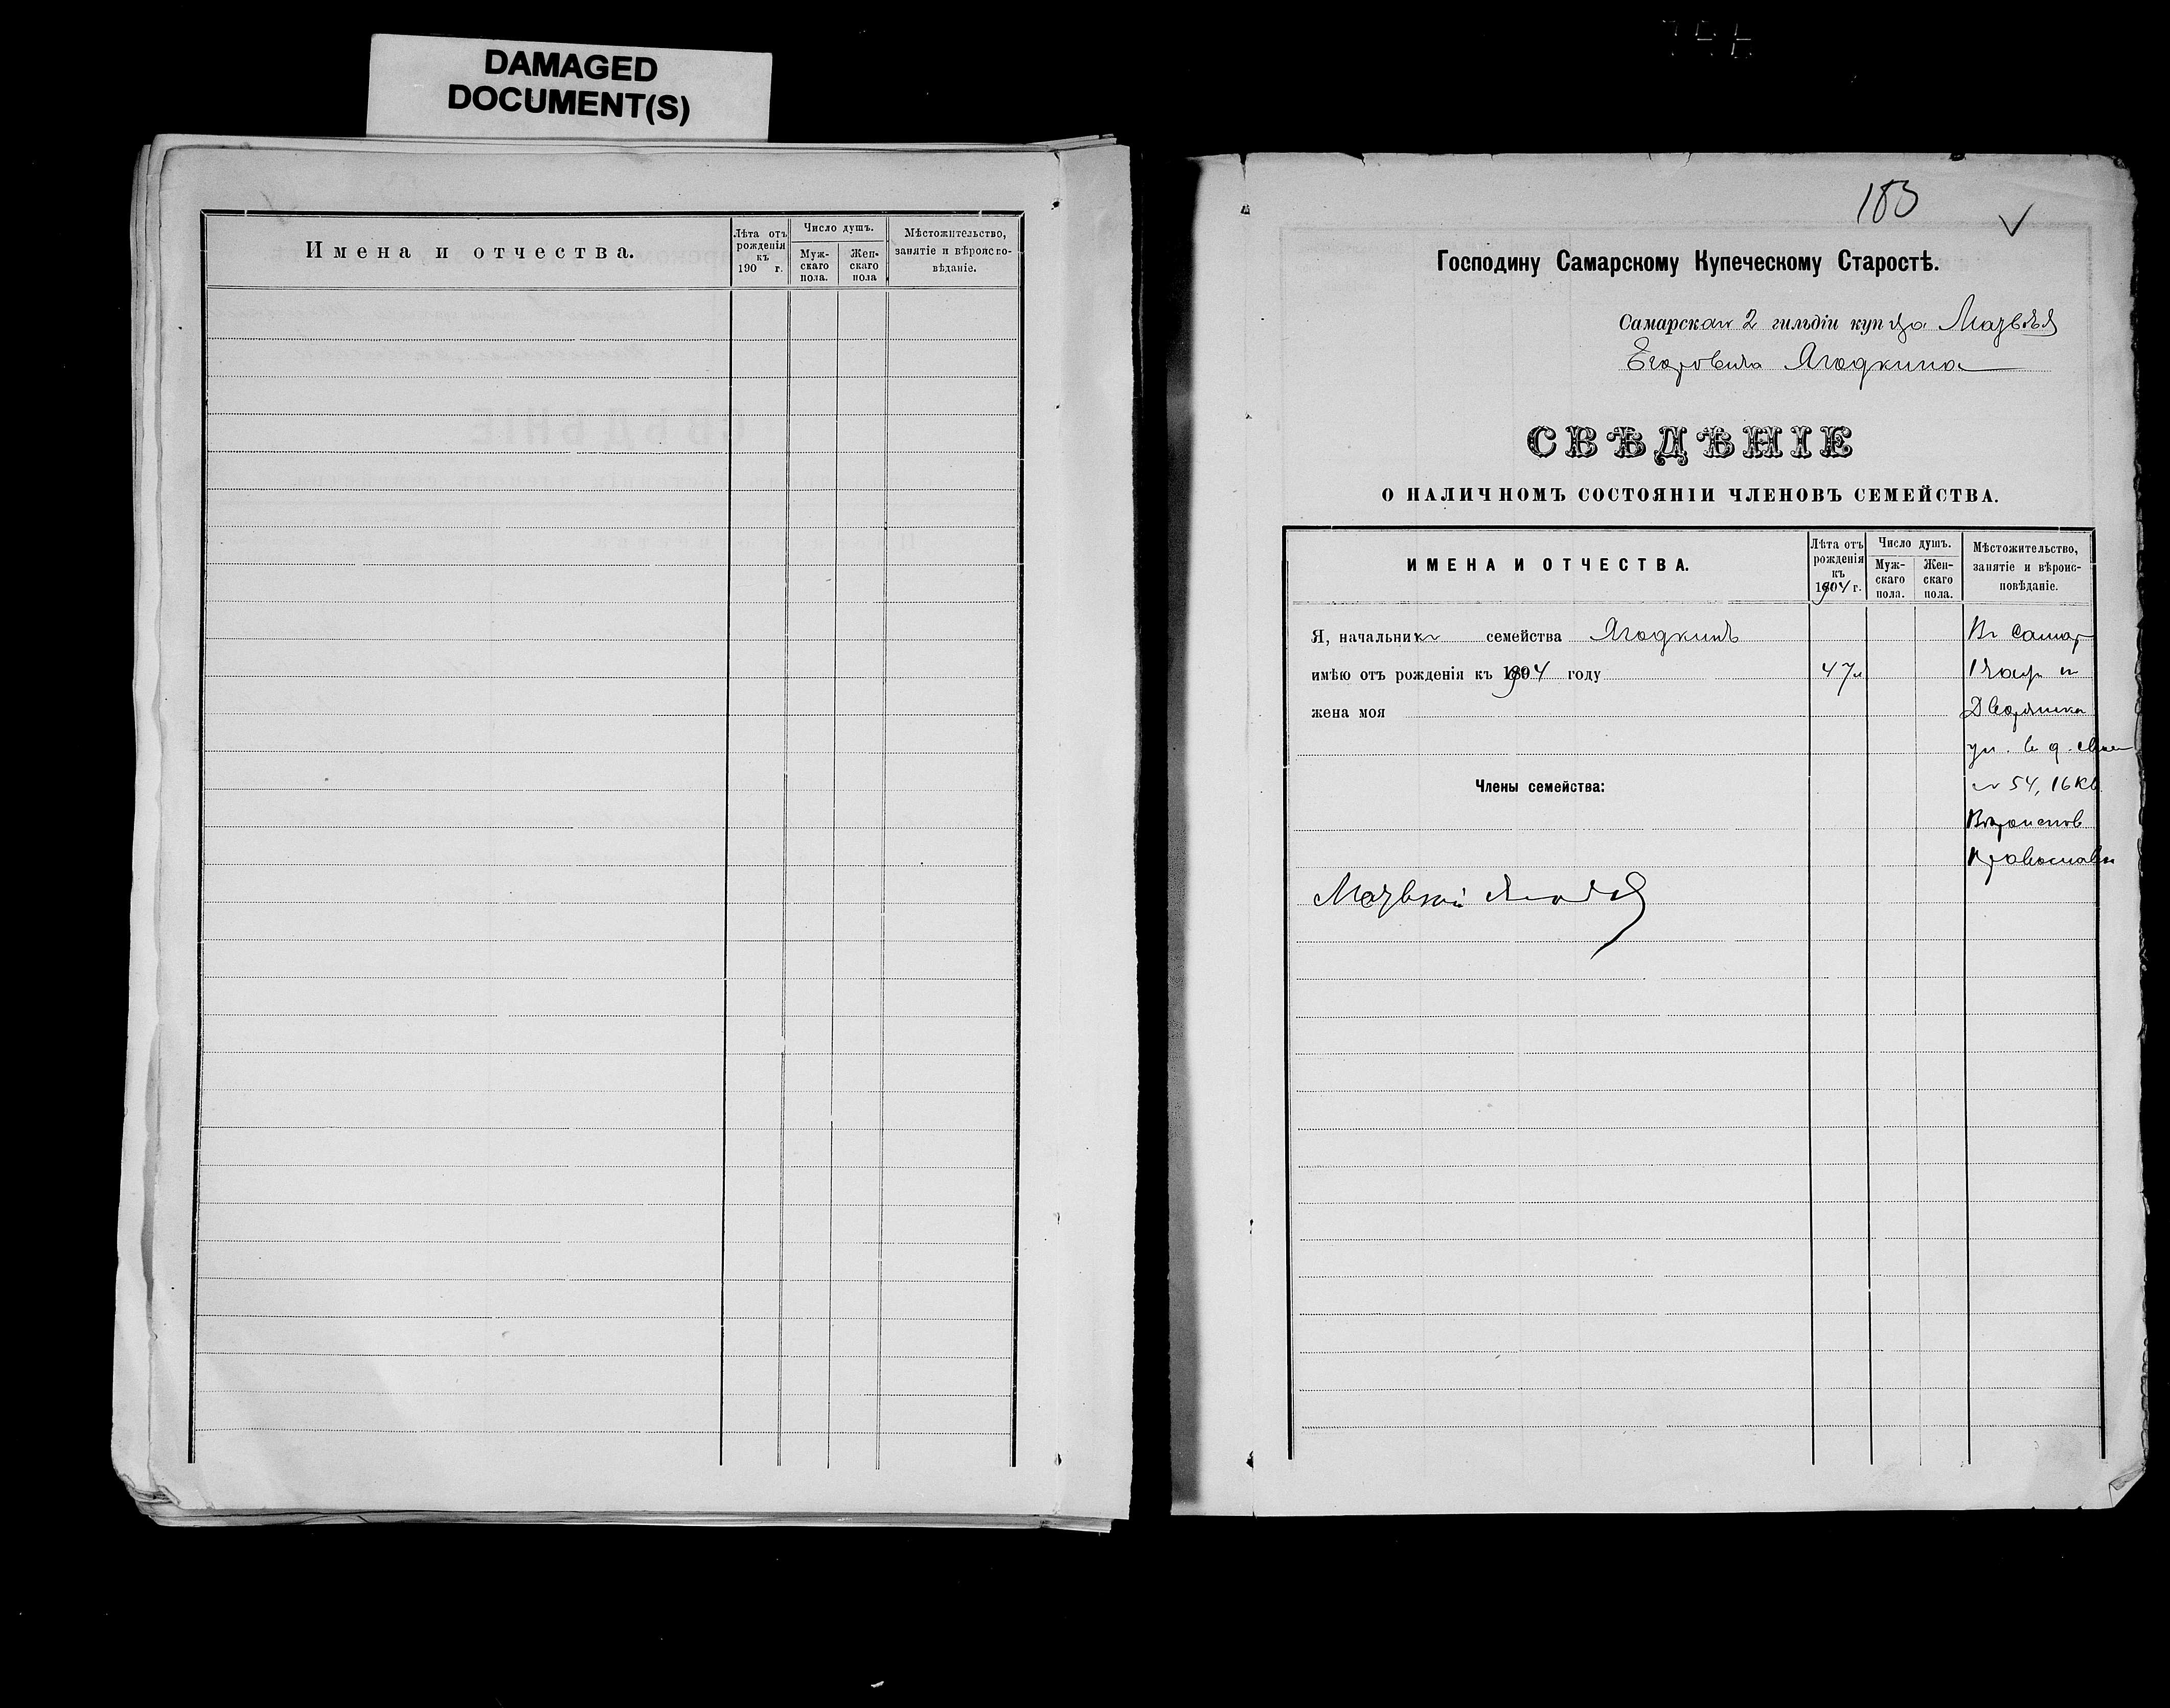 DAMAGED
DOCUMENT(S)
Имена и отчества.
Лѣта отъ рожденія къ 190 г.
Число душъ.
Муж-скаго пола.
Жен-скаго пола
Мѣстожительство, занятіе и вѣроиспо-вѣданіе.
183
Господину Самарскому Купеческому Старостѣ.
Самарскаго 2 гильдіи купца Матвѣя
Егоровича Ягодкина
СВѢДѢНІЕ
О НАЛИЧНОМЪ СОСТОЯНІИ ЧЛЕНОВЪ СЕМЕЙСТВА.
ИМЕНА И ОТЧЕСТВА.
Лѣта отъ рожденія къ 1904 г.
Число душъ.
Муж-скаго пола.
Жен-скаго пола.
Мѣстожительство, занятіе и вѣроис-повѣданіе.
Я, начальникъ семейства Ягодкинъ
Въ Самар
имѣю отъ рожденія къ 1904 году 47
жена моя
Дворянска
ул. в д.
Члены семейства:
54, 16 кв
Вѣроиспов
Православн
Матвѣй